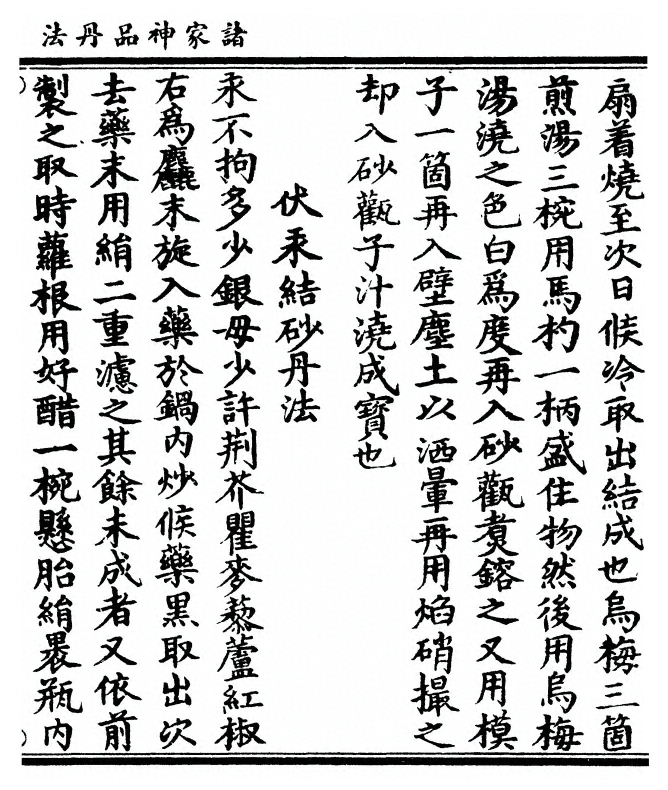 諸家神品丹法
扇着燒至次日候冷取出結成也烏梅三箇
煎湯三椀用馬杓一柄盛住物然後用烏梅
湯澆之色白爲度再入砂觀煑鎔之又用模
子一箇再入壁塵土以洒暈再用焰硝撮之
却入砂觀子汁澆成寳也
伏汞結砂丹法
汞不拘多少銀母少許荆芥瞿麥藜蘆紅椒
右爲麤末旋入藥於鍋内炒候藥黑取出次
去藥末用絹二重濾之其餘未成者又依前
製之取時蘿根用好醋一椀懸胎絹褁瓶内